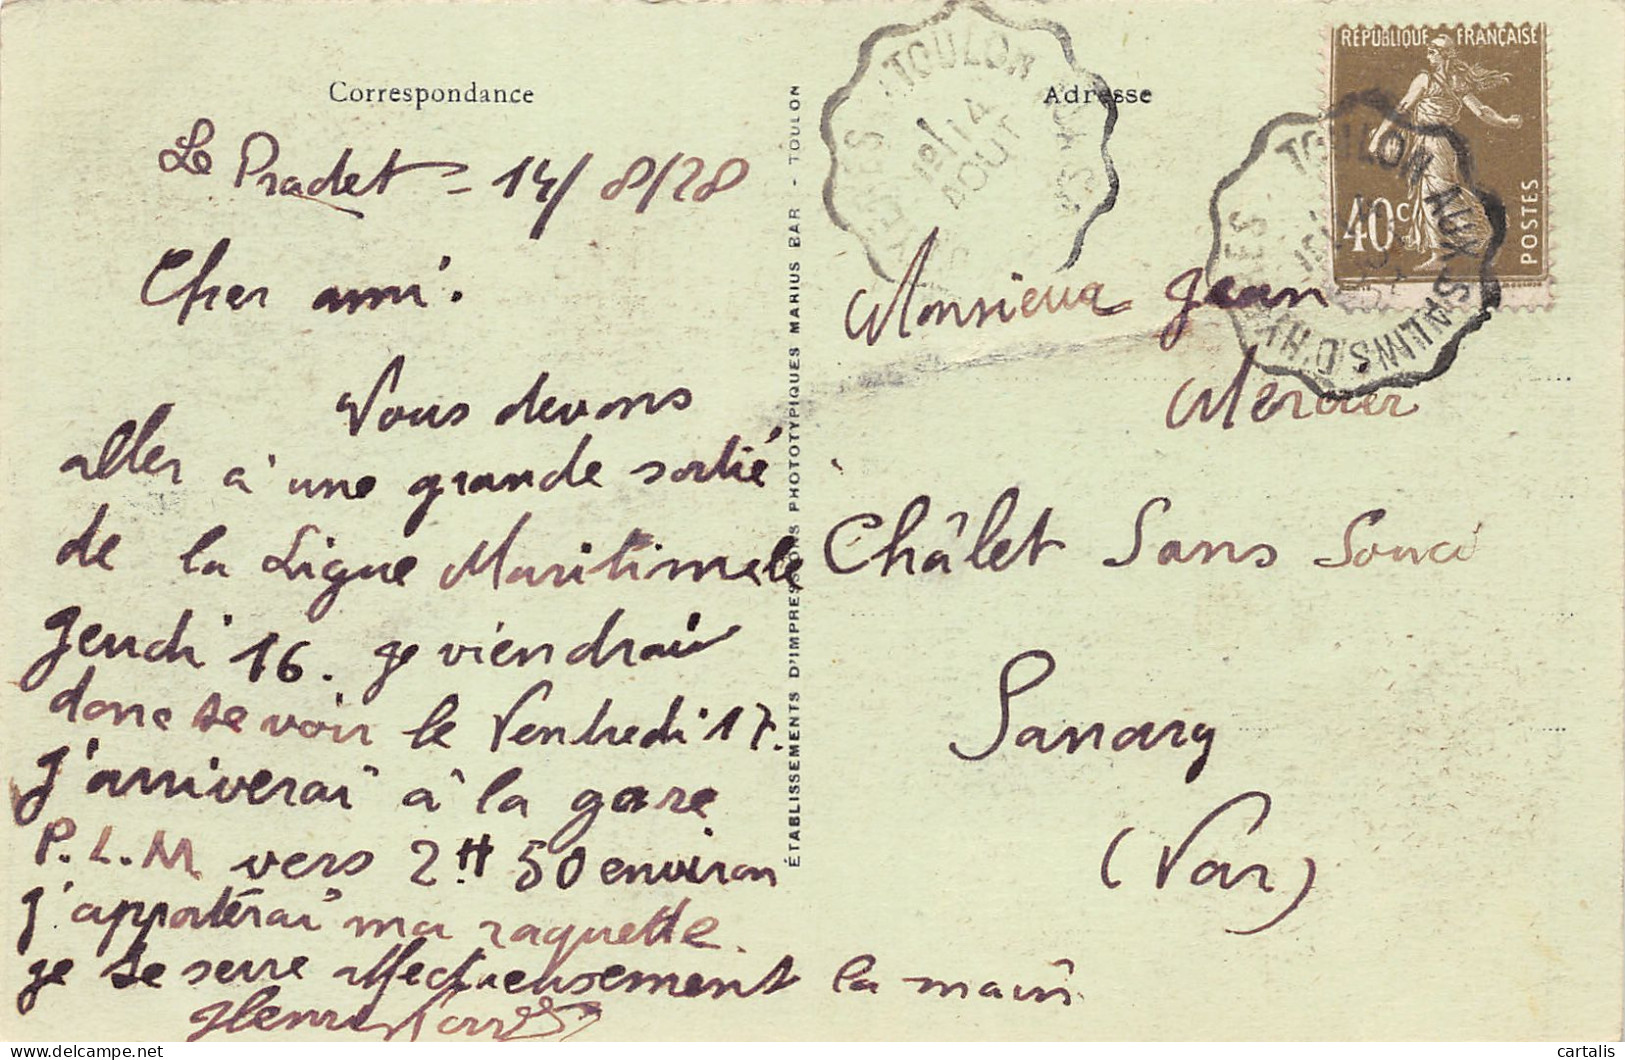 Correspondance
Le Pradet - 14/8/28
Cher ami.
Nous devons
aller à une grande sortie
de la Ligue Maritime le
jeudi 16. je viendrai
donc te voir le Vendredi 17.
J'arriverai à la gare
P.L.M. vers 2H 50 environ
j'apporterai ma raquette.
je te serre affectueusement la main
Henri
ÉTABLISSEMENTS D'IMPRESSIONS PHOTOTYPIQUES MARIUS BAR - TOULON
Adresse
Monsieur Jean
Mercier
Châlet Sans Souci
Sanary
(Var)
RÉPUBLIQUE FRANÇAISE
40c
POSTES
TOULON
14
AOUT
TOULON AUX SALINS D'HYERES
cartalis